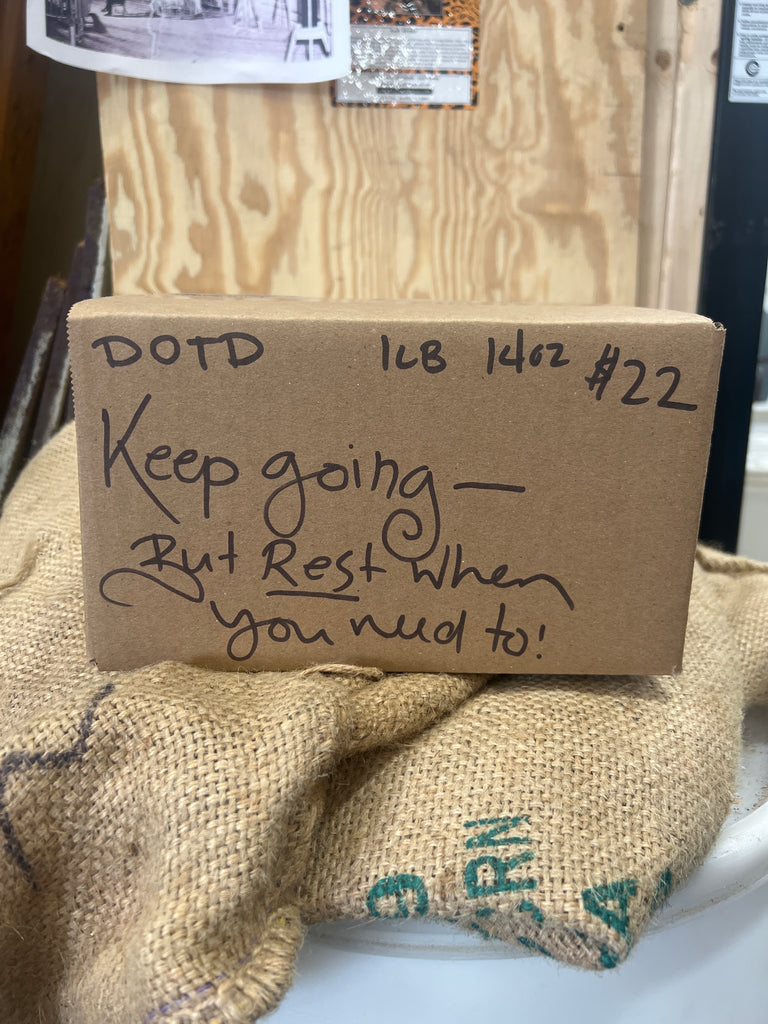 DOTD 1LB 14oz #22
Keep going —
But Rest when
you need to!
RN